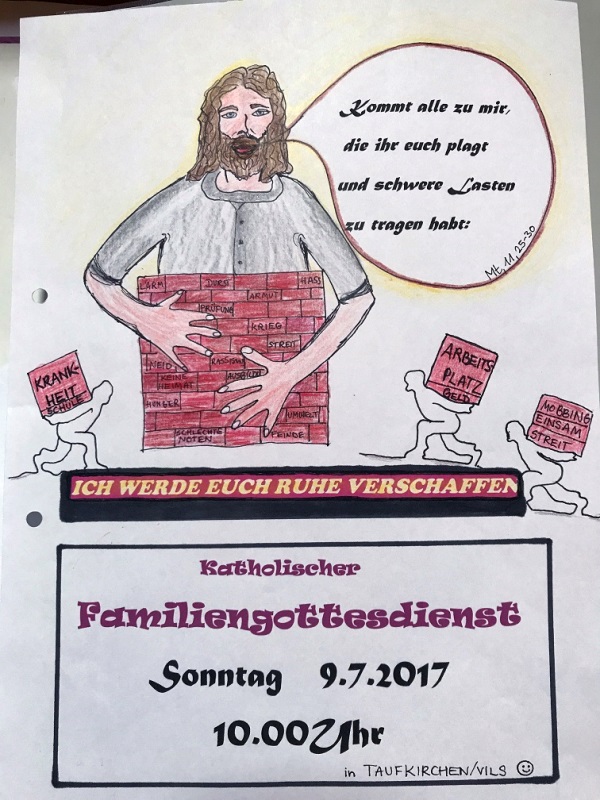 Kommt alle zu mir,
die ihr euch plagt
und schwere Lasten
zu tragen habt:
Mt, 11, 25-30
LÄRM DURST HASS
ARMUT
PRÜFUNG
KRIEG
STREIT
NEID RASSISMUS
KEINE HEIMAT
HUNGER
UMWELT
SCHLECHTE NOTEN
FEINDE
KRANK-
HEIT
SCHULE
ARBEITS
PLATZ
GELD
MOBBING
EINSAM
STREIT
ICH WERDE EUCH RUHE VERSCHAFFEN
Katholischer
Familiengottesdienst
Sonntag 9.7.2017
10.00 Uhr
in TAUFKIRCHEN/VILS